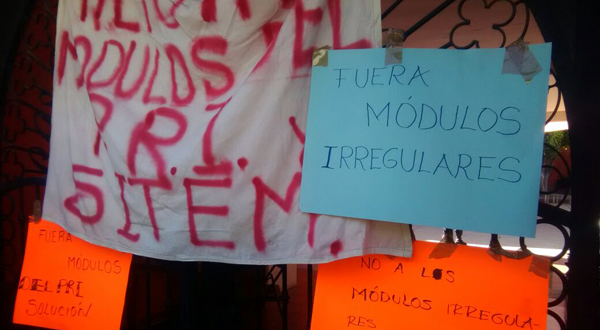 DEL
MODULOS
P.R.I. Y
SITEM.
FUERA
MÓDULOS
IRREGULARES
FUERA
MODULOS
DEL PRI
SOLUCIÓN
NO A LOS
MÓDULOS IRREGULA-
RES